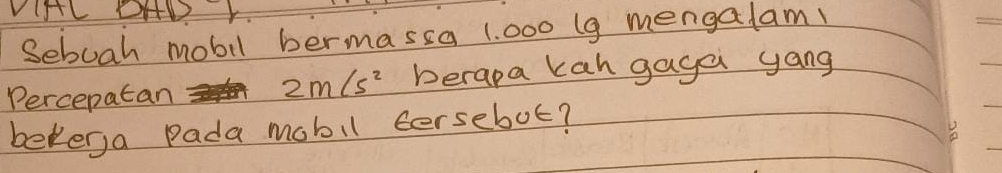 Sebuah mobil bermassa 1.000 kg mengalami
Percepatan 2m/s² berapa kah gaya yang
bekerja pada mobil tersebut?